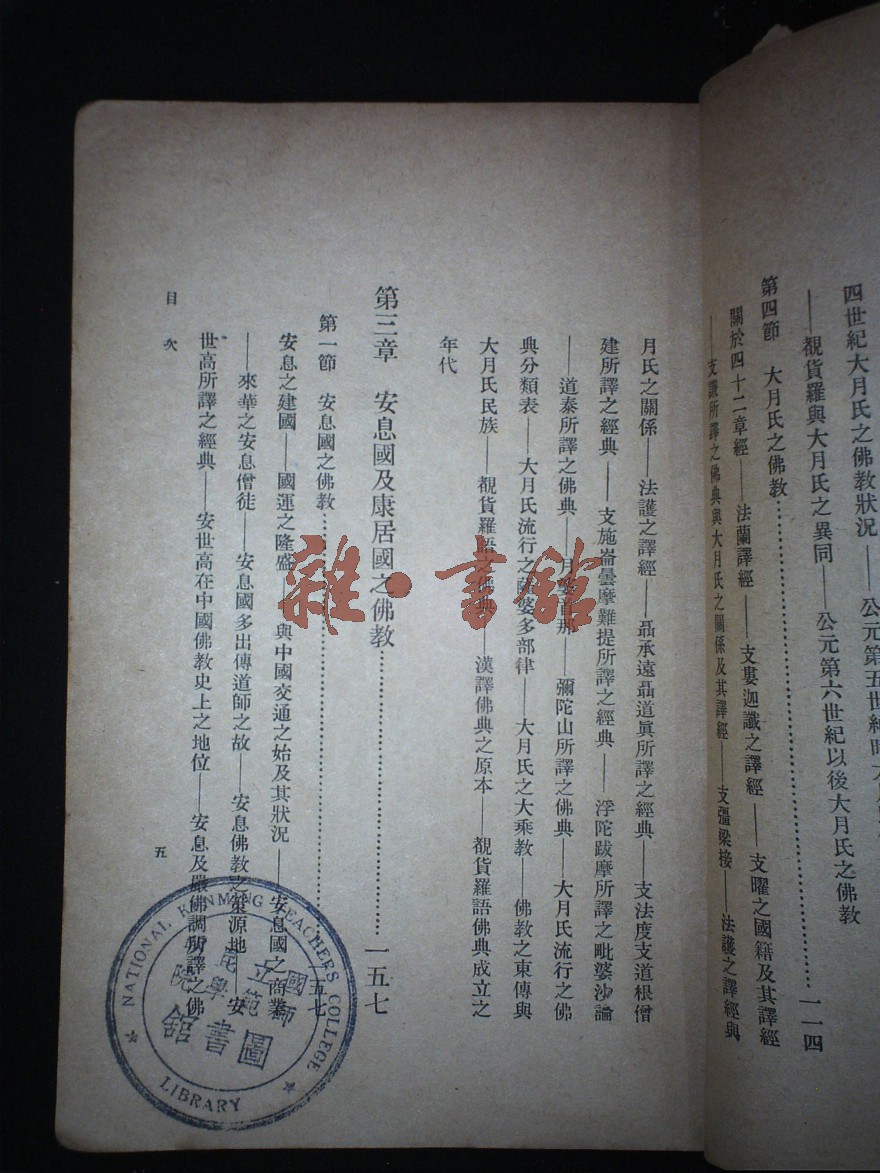 四世紀大月氏之佛教狀況——公元第五世紀時大月
——覩貨羅與大月氏之異同——公元第六世紀以後大月氏之佛教
第四節 大月氏之佛教…………一一四
關於四十二章經——法蘭譯經——支婁迦讖之譯經——支曜之國籍及其譯經
——支謙所譯之佛典與大月氏之關係及其譯經——支彊梁接——法護之譯經與
月氏之關係——法護之譯經——聶承遠聶道眞所譯之經典——支法度支道根僧
建所譯之經典——支施崙曇摩難提所譯之經典——浮陀跋摩所譯之毗婆沙論
——道泰所譯之佛典——月婆首那——彌陀山所譯之佛典——大月氏流行之佛
典分類表——大月氏流行之薩婆多部律——大月氏之大乘教——佛教之東傳與
大月氏民族——覩貨羅語之佛典——漢譯佛典之原本——覩貨羅語佛典成立之
年代
第三章 安息國及康居國之佛教…………一五七
第一節 安息國之佛教…………一五七
安息之建國——國運之隆盛——與中國交通之始及其狀況——安息國之商業
——來華之安息僧徒——安息國多出傳道師之故——安息佛教之策源地——安
世高所譯之經典——安世高在中國佛教史上之地位——安息及嚴佛調所譯之佛
目次
五
雜·書館
NATIONAL KUNMING TEACHERS COLLEGE
LIBRARY
國立昆
師範學院
圖書館